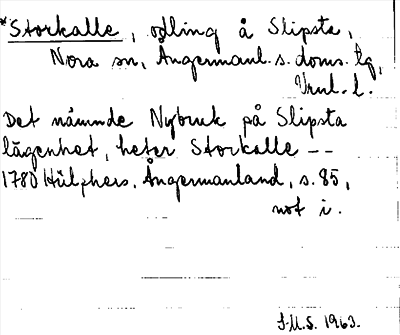 *Storkalle, odling å Slipsta,
Nora sn, Ångermanl. s. doms. lg,
Vnl. l.
Det nämnde Nybruk på Slipsta
lägenhet, heter Storkalle --
1780 Hülphers, Ångermanland, s. 85,
not i.
S.U.S. 1963.